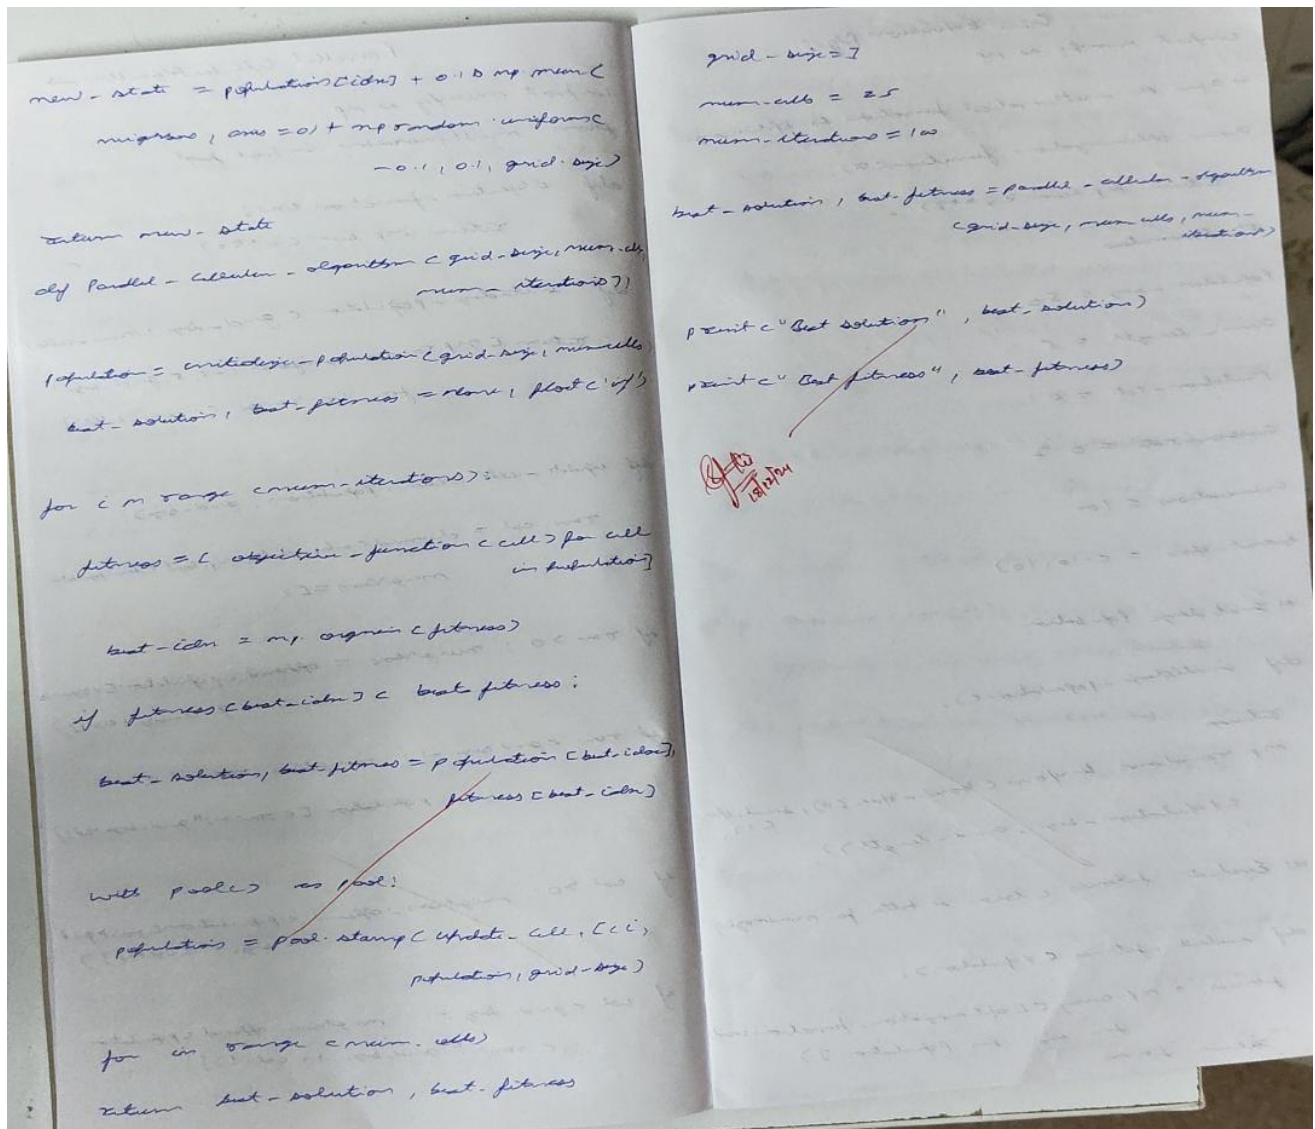 new_state = population[idx] + 0.1 * np.mean(
migrans, axis = 0) + np random.uniform(
-0.1, 0.1, grid.size)
return new_state
def Parallel_Cellular_algorithm (grid_size, num.cells,
num_iterations)):
population = initialize_population (grid_size, num cells)
best_solution, best_fitness = None, float('inf')
for i in range (num_iterations):
fitness = [ objective_function (cell) for cell
in population]
best_idx = np. argmin (fitness)
if fitness [best_idx] < best fitness:
best_solution, best_fitness = population [best_idx],
fitness [best_idx]
with pool() as pool:
population = pool.starmap (update_cell, [(i,
population, grid_size)
for in range (num_cells)
return best_solution, best_fitness
grid_size =
num_cells = 25
num_iterations = 100
best_solution, best_fitness = parallel_cellular_algorithm
(grid_size, num cells, num_
iterations)
print ("Best solution", best_solution)
print ("Best fitness", best_fitness)
18/12/24